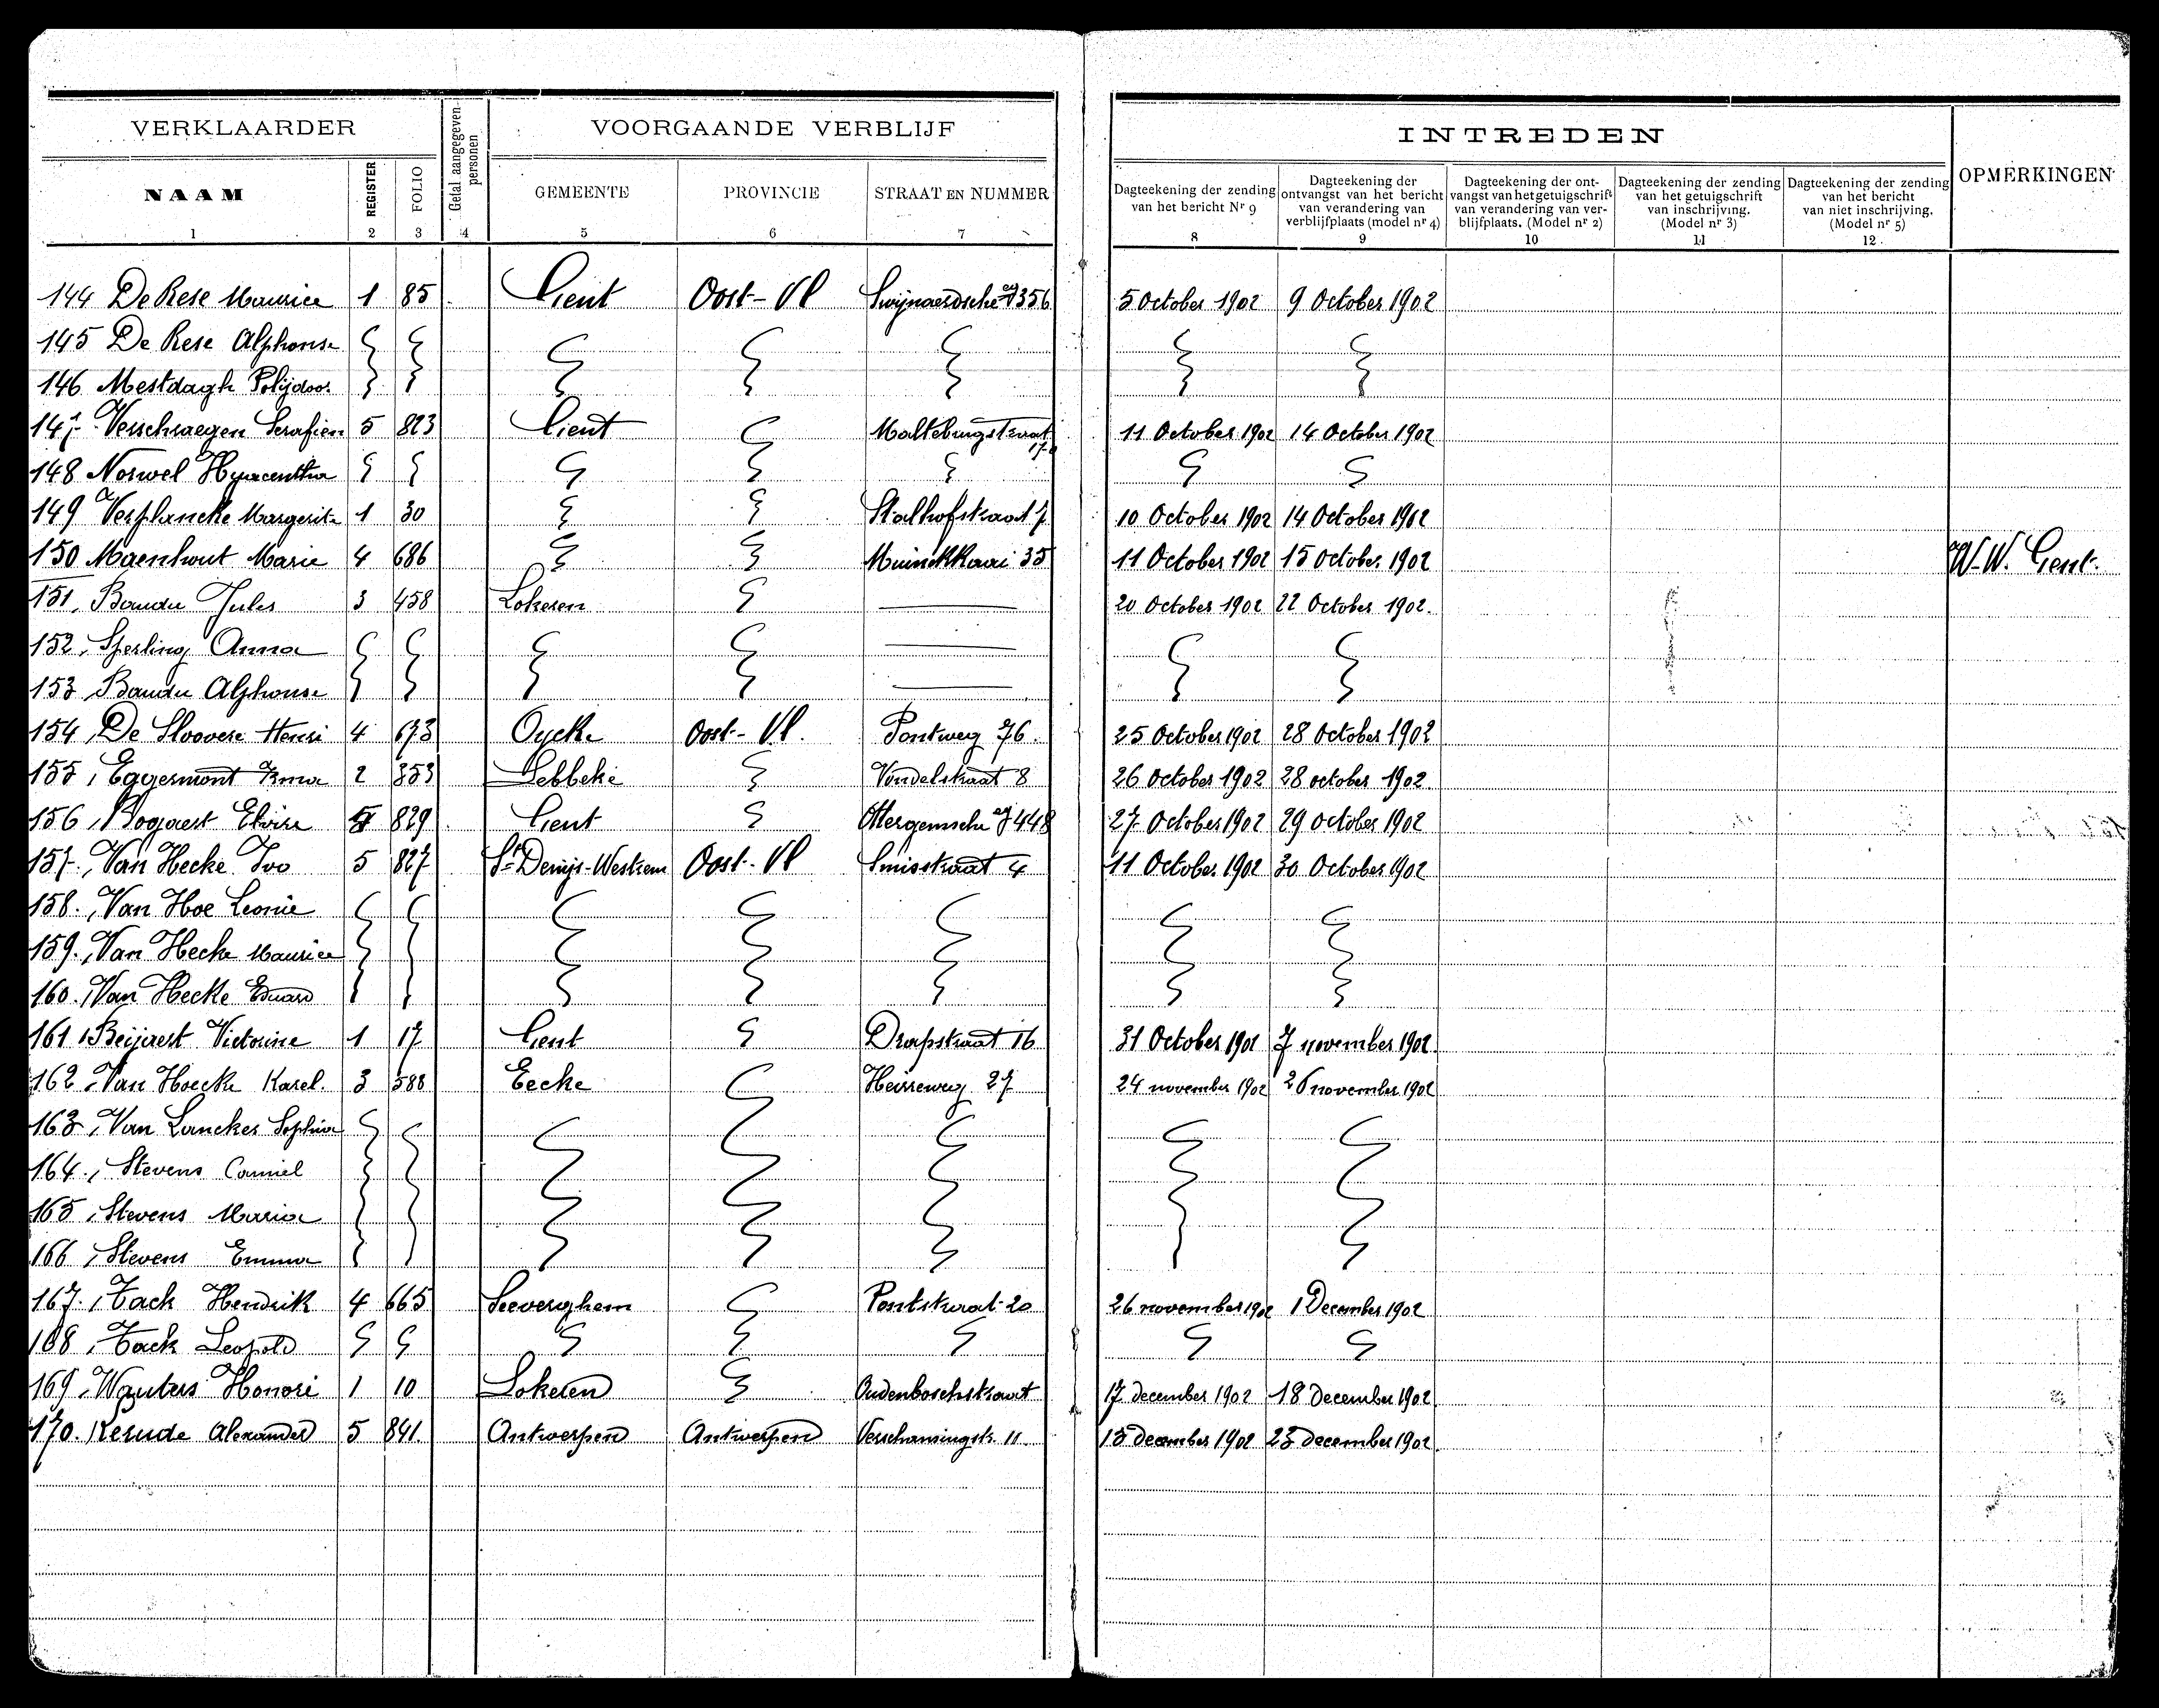 VERKLAARDER
Getal aangegeven personen
VOORGAANDE VERBLIJF
INTREDEN
OPMERKINGEN
NAAM REGISTER FOLIO GEMEENTE PROVINCIE STRAAT EN NUMMER
Dagteekening der zending van het bericht Nr 9
Dagteekening der ontvangst van het bericht van verandering van verblijfplaats (model nr 4)
Dagteekening der ontvangst van het getuigschrift van verandering van verblijfplaats. (Model nr 2)
Dagteekening der zending van het getuigschrift van inschrijving. (Model nr 3)
Dagteekening der zending van het bericht van niet inschrijving. (Model nr 5)
1 2 3 4 5 6 7 8 9 10 11 12
144 De Rese Maurice 1 85 Gent Oost-Vl 356 5 October 1902 9 October 1902
145 De Rese Alphonse
146 Mestdagh Polijdoor
147 Verschraegen Serafien 5 823 Gent Maltebrugstraat 17 11 October 1902 14 October 1902
148 Norwel Hyacentha
149 Verplancke Margerita 1 30 Stalhofstraat 7 10 October 1902 14 October 1902
150 Maenhout Marie 4 686 Muinckkaai 35 11 October 1902 15 October 1902 W.W. Gent.
151, Baudu Jules 3 458 Lokeren 20 October 1902 22 October 1902.
152, Sperling Anna
153, Baudu Alphonse
154, De Sloovere Henri 4 673 Oycke Oost-Vl. Pontweg 76. 25 October 1902 28 October 1902
155, Eggermont Irma 2 353 Lebbeke Vondelstraat 8 26 October 1902 28 october 1902
156, Bogaert Elvire 5 829 Gent 448 27 October 1902 29 October 1902
157, Van Hecke Ivo 5 827 St Denijs-Westrem Oost-Vl Smisstraat 4 11 October 1902 30 October 1902
158., Van Hoe Leonie
159., Van Hecke Maurice
160., Van Hecke Eduard
161, Beijaert Victorine 1 17 Gent Drapstraat 16 31 October 1902 7 november 1902.
162, Van Hoecke Karel. 3 588 Eecke Heirweg 27 24 november 1902 26 november 1902
163, Van Lancker Sophia
164., Stevens Camiel
165, Stevens Maria
166, Stevens Emma
167., Tack Hendrik 4 665 Seeverghem Pontstraat 20 26 november 1902 1 December 1902
168, Tack Leopold
169, Wauters Honoré 1 10 Lokeren Oudenboschstraat 17 december 1902 18 December 1902
170. Alexander 5 841. Antwerpen Antwerpen Verschansingstr. 11 15 december 1902 23 december 1902